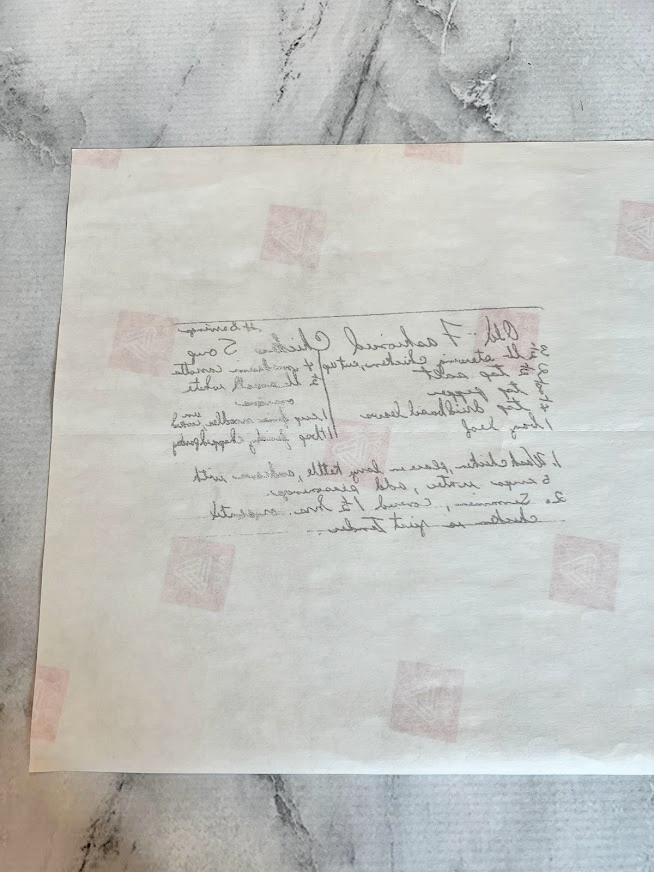 4 Servings
Old Fashioned Chicken Soup
lb stewing chicken, cut up
tsp salt
tsp pepper
tsp dried basil leaves
1 bay leaf
4 carrots
½ lb small white
onions
1 cup fine noodles,
finely chopped parsley
1. Wash chicken, place in large kettle, with
5 cups water, add seasonings.
2. Simmer, covered 1½ hrs. or until
chicken is just tender.